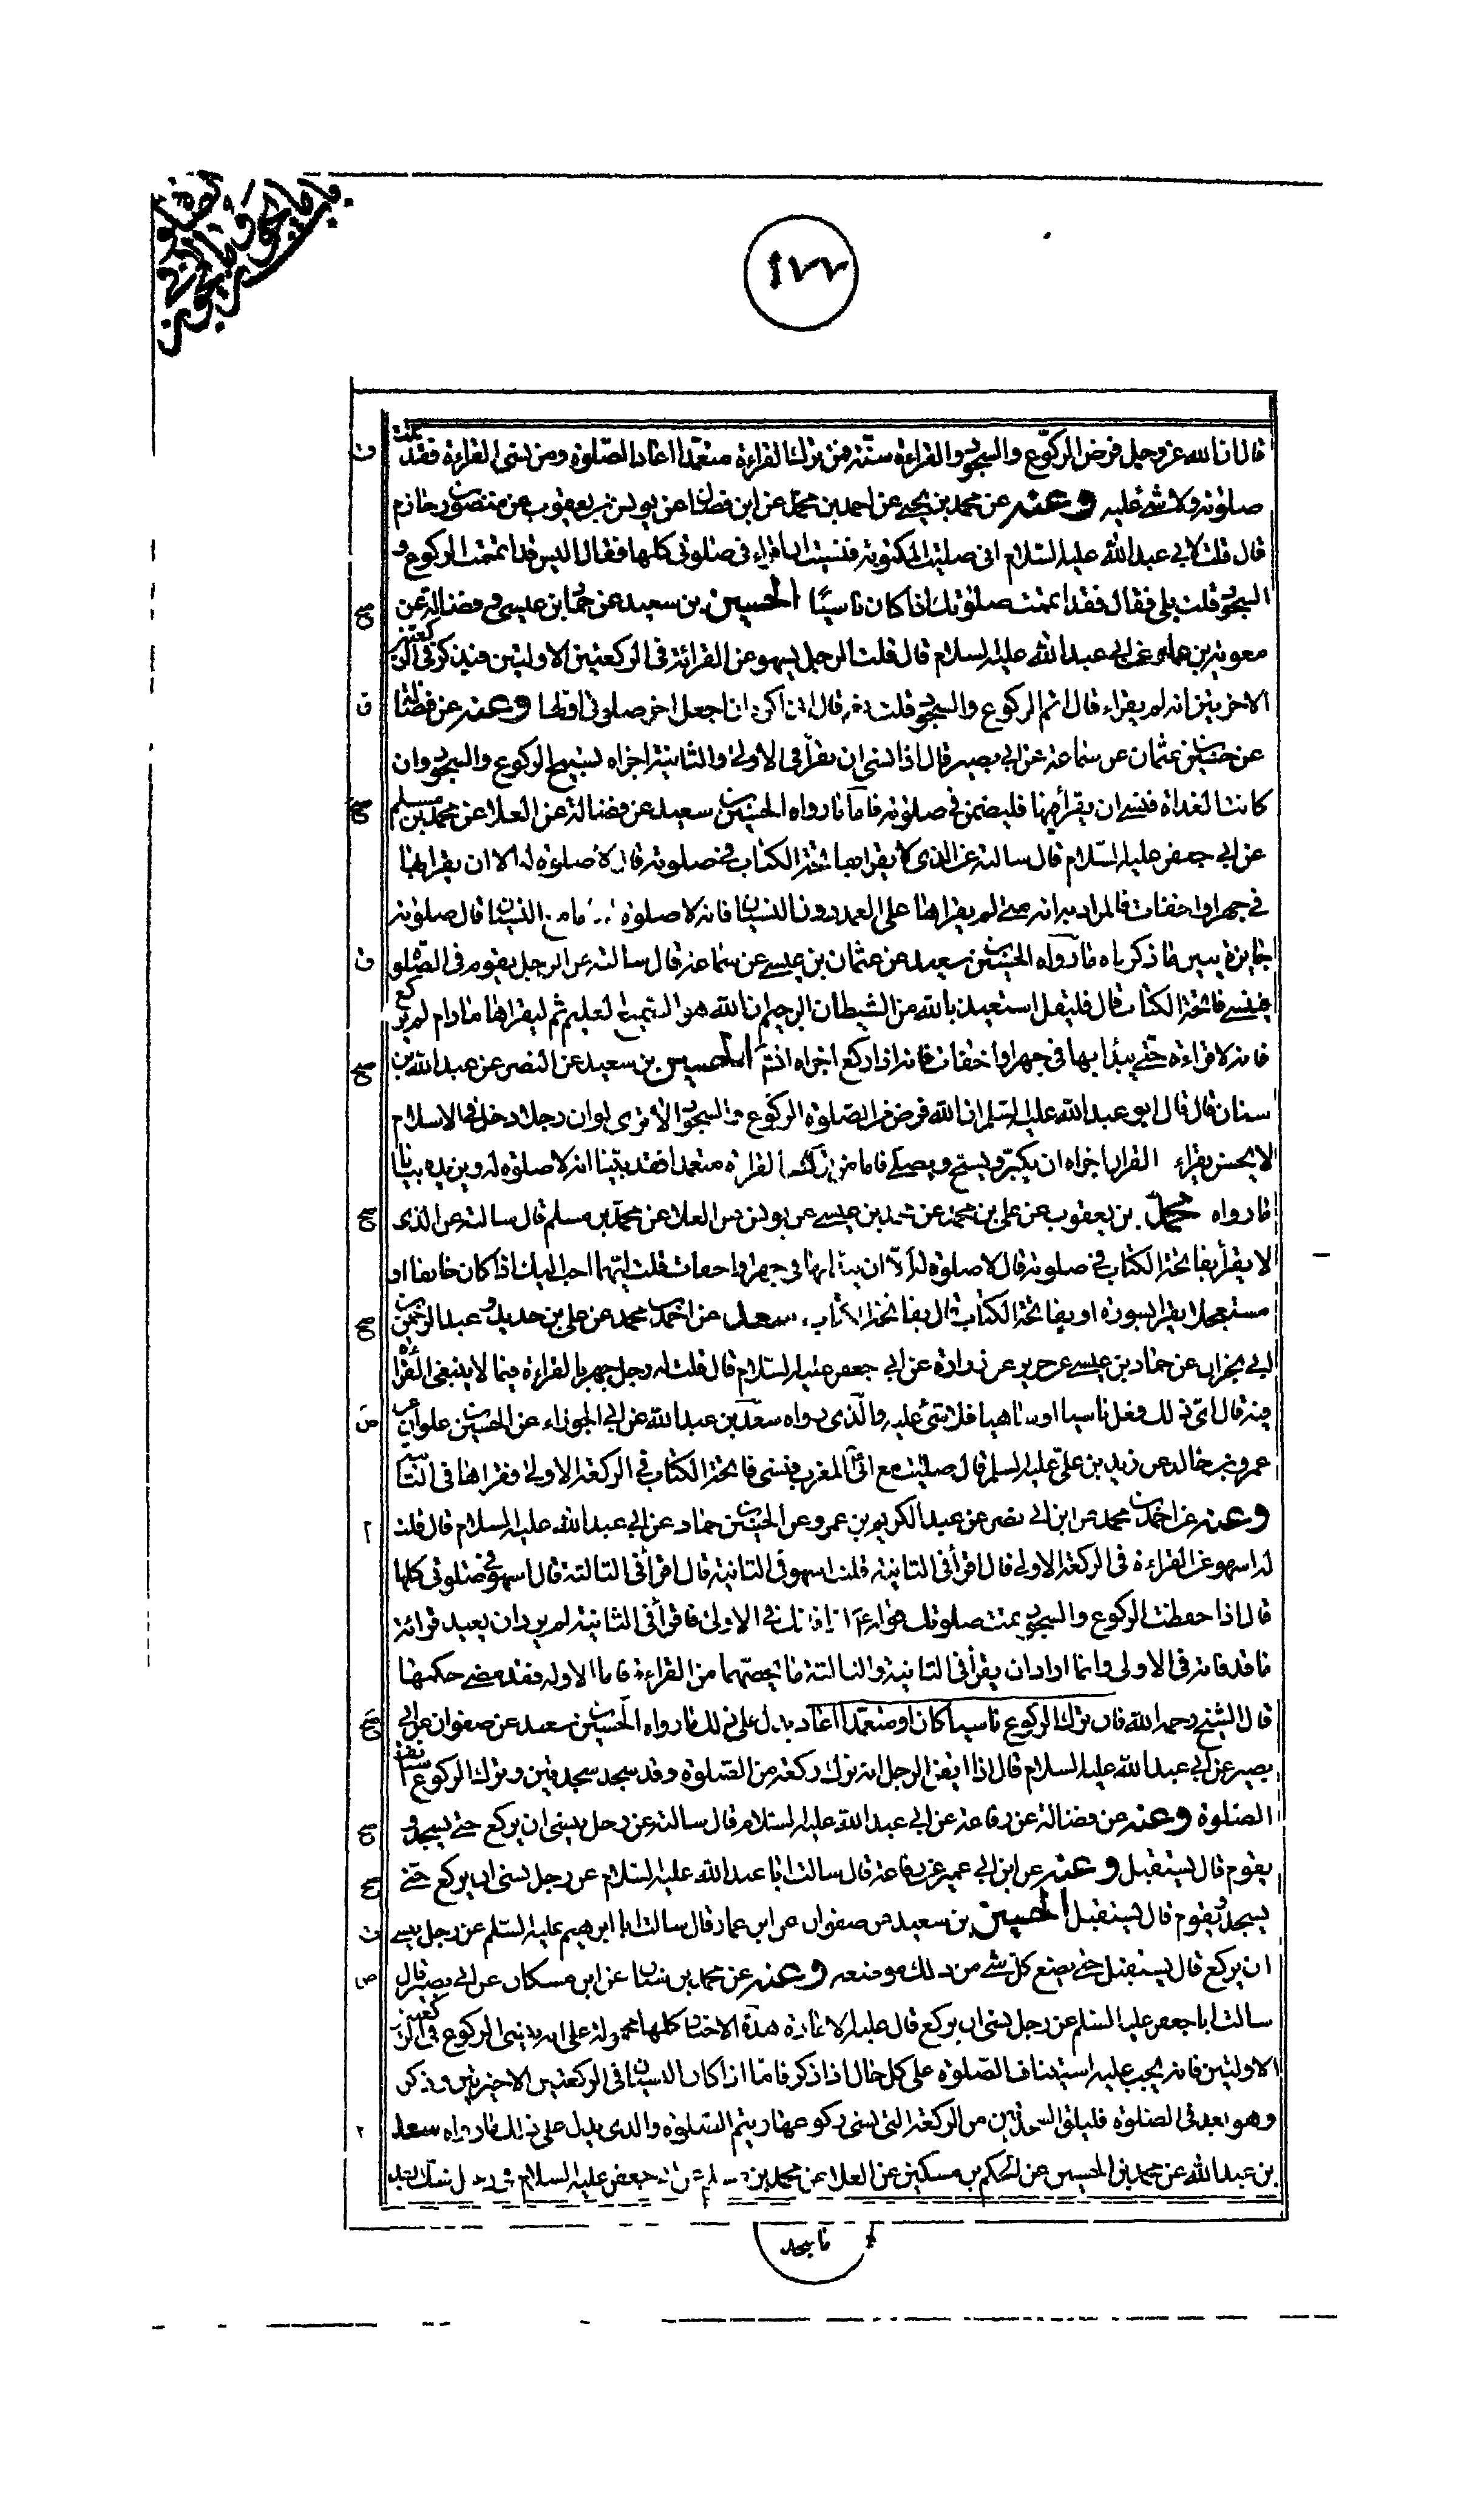 ١٧٧
قال ان الله عز وجل فرض الركوع والسجود والقراءة سنة فمن ترك القراءة متعمدا اعاد الصلوة ومن نسى القراءة فقد تمت
صلوته ولا شئ عليه وعنه عن محمد بن يحيى عن احمد بن محمد عن ابن فضال عن يونس بن يعقوب عن منصور بن حازم
قال قلت لابي عبد الله عليه السلام انى صليت المكتوبة فنسيت ان اقراء فى صلوتى كلها فقال اليس قد اتممت الركوع و
السجود قلت بلى فقال فقد تمت صلوتك اذا كان ناسيًا الحسين بن سعيد عن حماد بن عيسى و فضالة عن
معوية بن عمار عن ابى عبد الله عليه السلام قال قلت الرجل يسهو عن القرائة فى الركعتين الاوليتين فيذكر فى الركعتين
الاخريتين انه لم يقراء قال اتم الركوع والسجود قلت نعم قال انى اكره ان اجعل اخر صلوتى اولها وعنه عن فضالة
عن حسين بن عثمان عن سماعة عن ابى بصير قال اذا نسى ان يقرأ فى الاولى والثانية اجزاه تسبيح الركوع والسجود وان
كانت الغداة فنسى ان يقرأ فيها فليمض فى صلوته فاما ما رواه الحسين بن سعيد عن فضالة عن العلا عن محمد بن مسلم
عن ابى جعفر عليه السلام قال سالته عن الذى لا يقرا بفاتحة الكتاب فى صلوته قال لا صلوة له الا ان يقرا بها
فى جهر او اخفات فالمراد به انه متى لم يقراها على العمد دون النسيان فانه لا صلوة له فاما مع النسيان قال صلوته
جايزة يبين ما ذكرناه ما رواه الحسين بن سعيد عن عثمان بن عيسى عن سماعة قال سالته عن الرجل يقوم فى الصلوة
فينسى فاتحة الكتاب قال فليقل استعيذ بالله من الشيطان الرجيم ان الله هو السميع العليم ثم ليقراها ما دام لم يركع
فانه لا قراءة حتى يبدا بها فى جهر او اخفات فانه اذا ركع اجزاه انشم الحسين بن سعيد عن النضر عن عبد الله بن
سنان قال قال ابو عبد الله عليه السلم ان الله فرض من الصلوة الركوع والسجود الا ترى لو ان رجلا دخل فى الاسلام
لا يحسن يقراء القران اجزاه ان يكبر ويسبح ويصلى فاما من ترك القراءة متعمدا فقد بينا انه لا صلوة له ويزيده بيانا
ما رواه محمد بن يعقوب عن على بن محمد عن محمد بن عيسى عن يونس عن العلا عن محمد بن مسلم قال سالته عن الذى
لا يقرأ بفاتحة الكتاب فى صلوته قال لا صلوة له الا ان يبدا بها فى جهر او اخفات قلت ايهما احب اليك اذا كان خايفا او
مستعجلا يقرا بسورة او بفاتحة الكتاب قال بفاتحة الكتاب سعد عن احمد بن محمد عن على بن حديد و عبد الرحمن بن
ابى نجران عن حماد بن عيسى عن حريز عن زرارة عن ابى جعفر عليه السلام قال قلت له رجل جهر بالقراءة فيما لا ينبغى القراءة
فيه قال اى ذلك فعل ناسيا او ساهيا فلا شئ عليه والذى رواه سعد بن عبد الله عن ابى الجوزاء عن الحسين بن علوان عن
عمرو بن خالد عن زيد بن على عليه السلم قال صليت مع ابى المغرب فنسى فاتحة الكتاب فى الركعة الاولى فقراها فى الثانية
وعنه عن احمد بن محمد عن ابن ابى نصر عن عبد الكريم بن عمرو عن الحسين بن حماد عن ابى عبد الله عليه السلام قال قلت
له اسهو عن القراءة فى الركعة الاولى قال اقرأ فى الثانية قلت اسهو فى الثانية قال اقرأ فى الثالثة قال اسهو فى صلوتى كلها
قال اذا حفظت الركوع والسجود تمت صلوتك فاقرأ فى الثانية لم يرد ان يعيد قرائة
ما قد فاته فى الاولى وانما اراد ان يقرأ فى الثانية والثالثة ما يخصهما من القراءة فاما الاولة فقد مضى حكمها
قال الشيخ رحمه الله فان ترك الركوع ناسيا كان او متعمدا اعاد يدل على ذلك ما رواه الحسين بن سعيد عن صفوان عن ابى
بصير عن ابى عبد الله عليه السلام قال اذا ايقن الرجل انه ترك ركعة من الصلوة وقد سجد سجدتين وترك الركوع استانف
الصلوة وعنه عن فضالة عن رفاعة عن ابى عبد الله عليه السلام قال سالته عن رجل ينسى ان يركع حتى يسجد و
يقوم قال يستقبل وعنه عن ابن ابى عمير عن رفاعة قال سالت ابا عبد الله عليه السلام عن رجل نسى ان يركع حتى
يسجد و يقوم قال يستقبل الحسين بن سعيد عن صفوان عن ابن عمار قال سالت ابا ابرهيم عليه السلم عن رجل ينسى
ان يركع قال يستقبل حتى يضع كل شئ من ذلك موضعه وعنه عن محمد بن سنان عن ابن مسكان عن ابى بصير قال
سالت ابا جعفر عليه السلم عن رجل نسى ان يركع قال عليه الاعادة هذه الاخبار كلها محمولة على انه نسى الركوع فى الركعتين
الاوليتين فانه يجب عليه استيناف الصلوة على كل حال اذا ذكر فاما اذا كان النسيان فى الركعتين الاخيرتين وذكر
وهو بعد فى الصلوة فليلق السجدتين من الركعة التى نسى ركوعها ويتم الصلوة والذى يدل على ذلك ما رواه سعد
بن عبد الله عن محمد بن الحسين عن الحكم بن مسكين عن العلا عن محمد بن مسلم عن ابى جعفر عليه السلام فى رجل شك بعد
ما يسجد